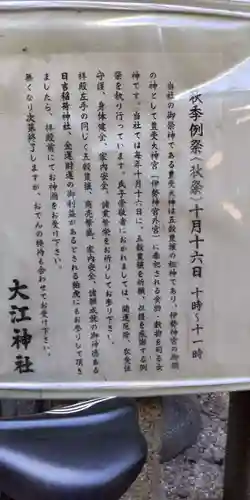 秋季例祭(秋祭)十月十六日 十時~十一時
当社の御祭神である豊受大神は五穀豊穣の祖神であり、伊勢神宮の御饌
の神として豊受大神宮(伊勢神宮外宮)に奉祀される食物・穀物を司る女
神です。当社では毎年十月十六日に、五穀豊穣を祈願、収穫を感謝する例
祭を執り行っています。氏子崇敬者におかれましては、開運厄除、教受伍
守護、身体健全、家内安全、諸業繁栄をお祈りしてお参り下さい。
拝殿左手の同じく五穀豊穣、商売繁盛、家内安全、諸願成就の御神徳ある
日吉稲荷神社、金運財運の御利益があるとされる 蛇にもお参りして頂き
ましたら、拝殿前にてお神酒をお受け下さい。
無くなり次第終了しますが、おでんの接待も合わせてお受け下さい。
大江神社